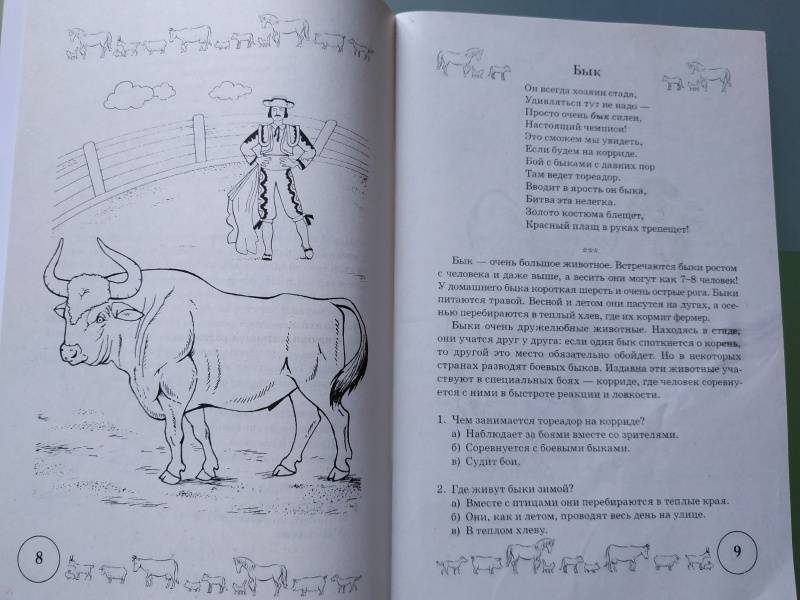 8
Бык
Он всегда хозяин стада,
Удивляться тут не надо —
Просто очень бык силен,
Настоящий чемпион!
Это сможем мы увидеть,
Если будем на корриде.
Бой с быками с давних пор
Там ведет тореадор.
Вводит в ярость он быка,
Битва эта нелегка.
Золото костюма блещет,
Красный плащ в руках трепещет!
***
Бык — очень большое животное. Встречаются быки ростом
с человека и даже выше, а весить они могут как 7–8 человек!
У домашнего быка короткая шерсть и очень острые рога. Быки
питаются травой. Весной и летом они пасутся на лугах, а осе-
нью перебираются в теплый хлев, где их кормит фермер.
Быки очень дружелюбные животные. Находясь в стаде,
они учатся друг у друга: если один бык споткнется о корень,
то другой это место обязательно обойдет. Но в некоторых
странах разводят боевых быков. Издавна эти животные уча-
ствуют в специальных боях — корриде, где человек соревну-
ется с ними в быстроте реакции и ловкости.
1. Чем занимается тореадор на корриде?
а) Наблюдает за боями вместе со зрителями.
б) Соревнуется с боевыми быками.
в) Судит бои.
2. Где живут быки зимой?
а) Вместе с птицами они перебираются в теплые края.
б) Они, как и летом, проводят весь день на улице.
в) В теплом хлеву.
9